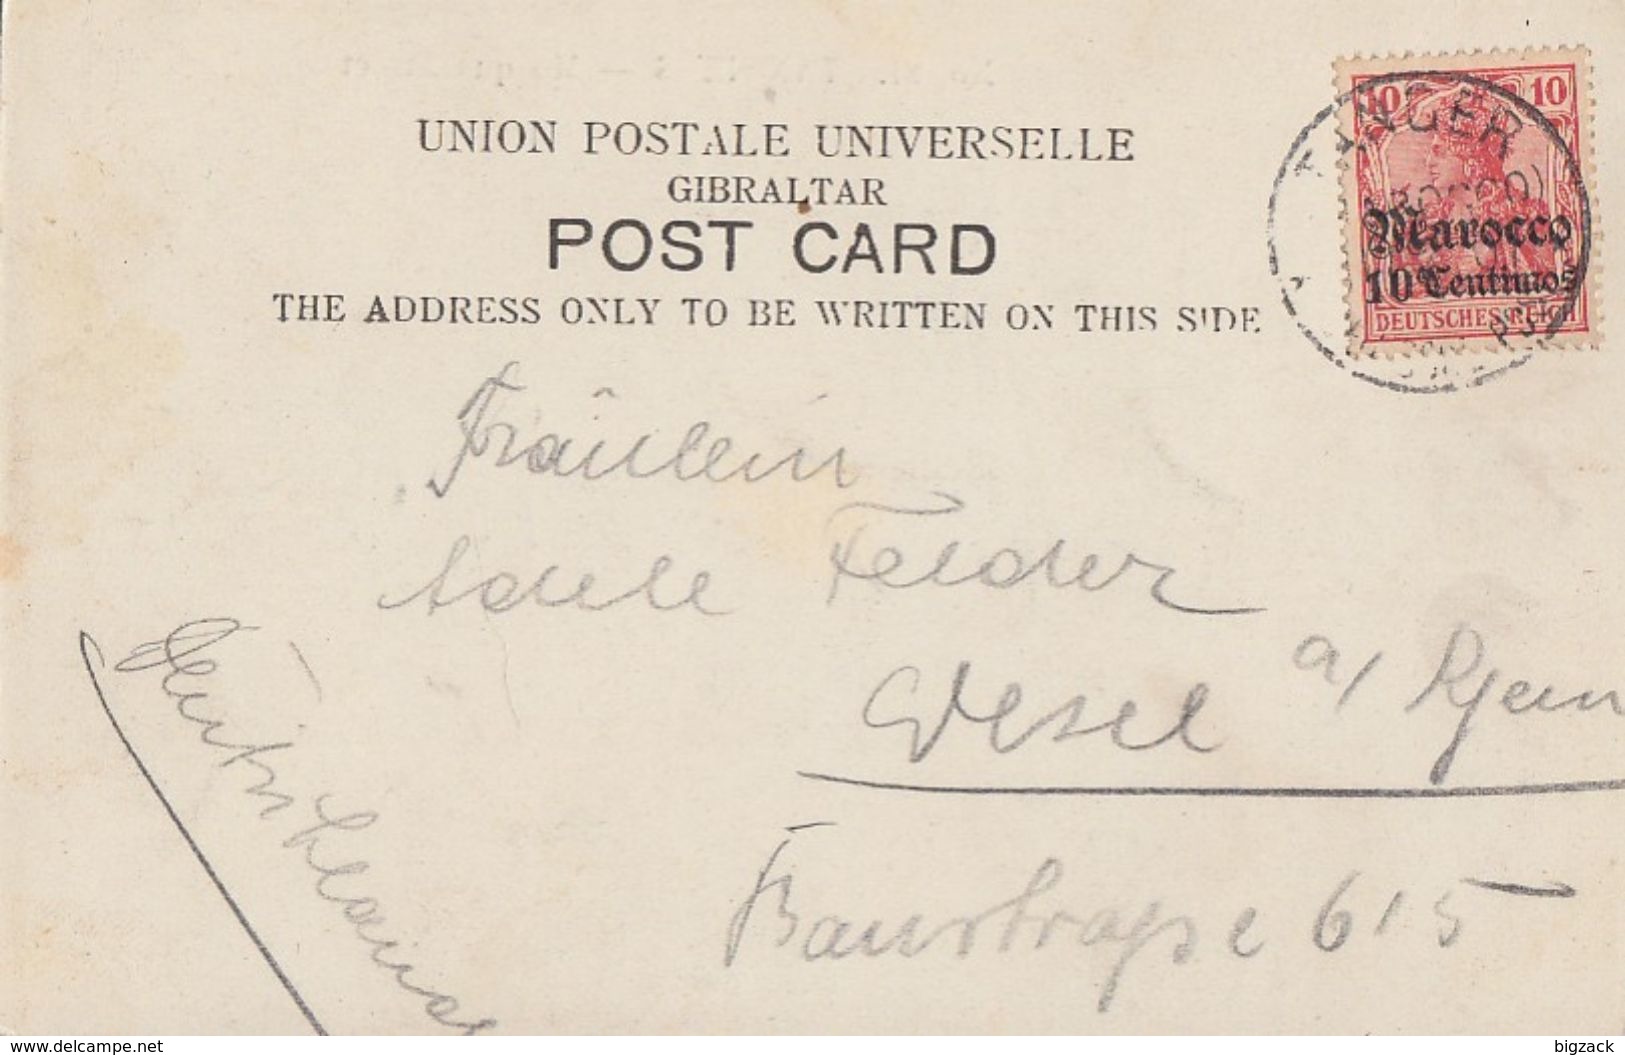 UNION POSTALE UNIVERSELLE
GIBRALTAR
POST CARD
THE ADDRESS ONLY TO BE WRITTEN ON THIS SIDE
10 10
Marocco
10 Centimos
DEUTSCHES REICH
TANGER
Fräulein
Adele Felder
Wesel a/ Rhein
Baustraße 615
Deutschland
www.delcampe.net
bigzack